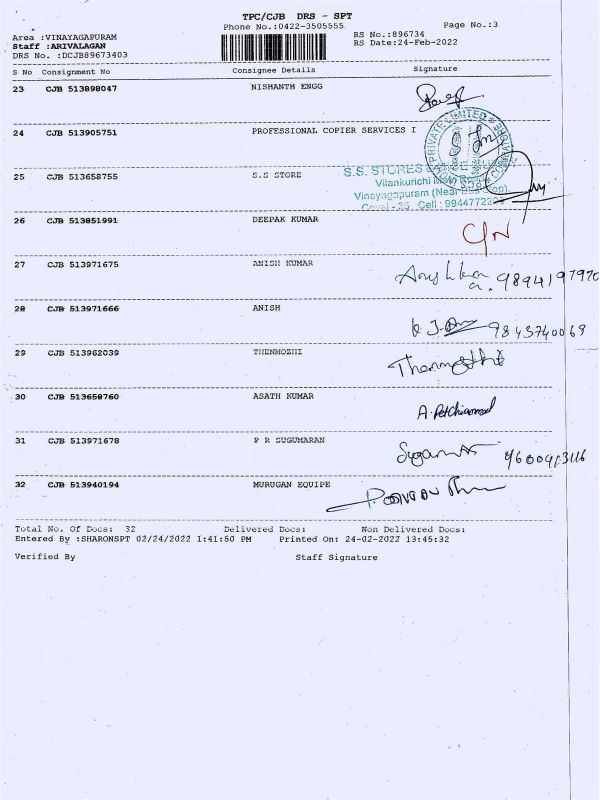 TPC/CJB DRS - SPT
Phone No.:0422-3505555 Page No.:3
Area :VINAYAGAPURAM RS No.:896734
Staff :ARIVALAGAN RS Date:24-Feb-2022
DRS No. :DCJB89673403
S No Consignment No Consignee Details Signature
23 CJB 513898047 NISHANTH ENGG
24 CJB 513905751 PROFESSIONAL COPIER SERVICES I
PRIVATE LIMITED
25 CJB 513658755 S.S STORE
S.S. STORES
Vilankurichi
Vinayagapuram (Near
Covai - 35. Cell : 9944772
26 CJB 513851991 DEEPAK KUMAR C/N
27 CJB 513971675 ANISH KUMAR 9894197970
28 CJB 513971666 ANISH 9843740069
29 CJB 513962039 THENMOZHI Thenmozhi
30 CJB 513658760 ASATH KUMAR
31 CJB 513971678 P R SUGUMARAN 9600913116
32 CJB 513940194 MURUGAN EQUIPE
Total No. Of Docs: 32 Delivered Docs: Non Delivered Docs:
Entered By :SHARONSPT 02/24/2022 1:41:50 PM Printed On: 24-02-2022 13:45:32
Verified By Staff Signature